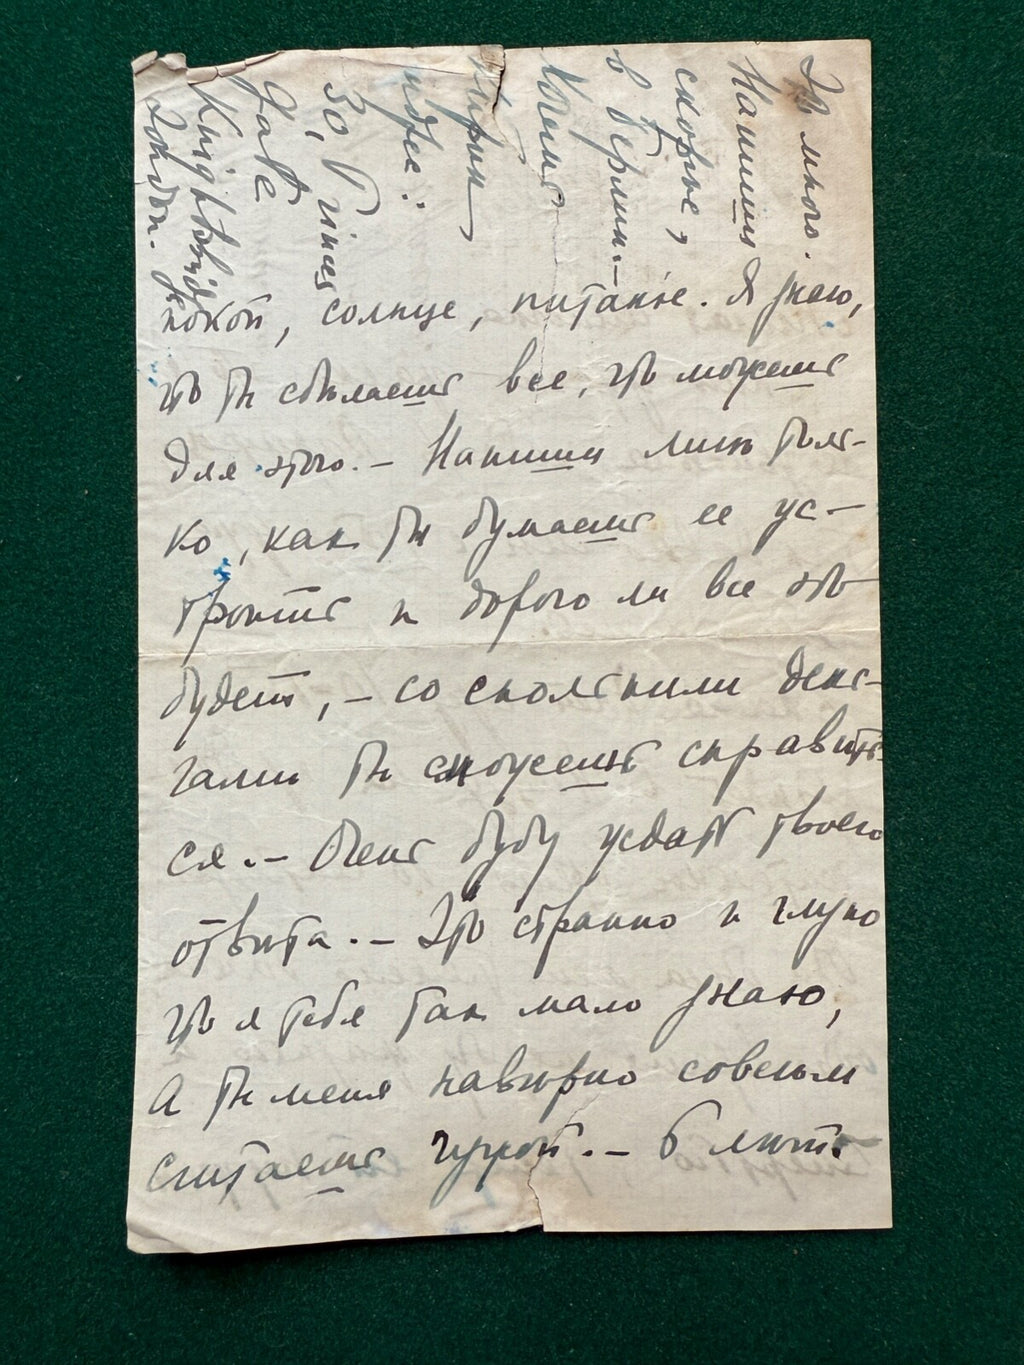 покой, солнце, питанье. Я знаю,
что ты сделаешь все, что можешь
для этого. – Напиши лишь толь-
ко, как ты думаешь ее ус-
троить и дорого ли все это
будет, – со сколькими день-
гами ты сможешь справить-
ся. – Очень буду ждать твоего
ответа. – Это странно и глупо
что я тебя так мало знаю,
а ты меня наверно совсем
считаешь чужой. – 6 лет
Это много.
Напиши
скорее,
в Берлин. –
Мой
адрес:
30, Princes
Gate
Knightsbridge
London.